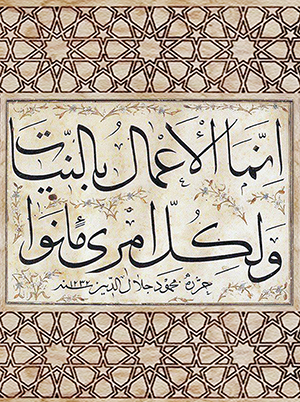 انّما الأعمال بالنيّات
ولكلّ امرئ مانوا
حرره محمود جلال الدين ١٢٣٢ سنه